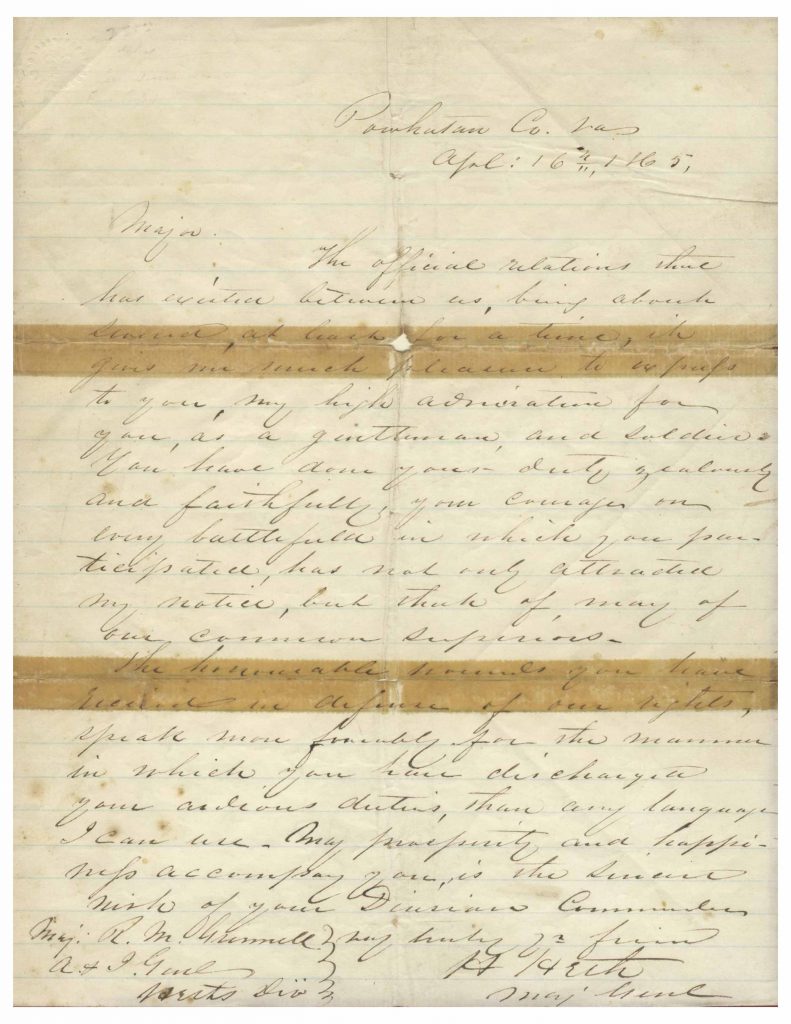 Powhatan Co. Va
Apl: 16th, 1865,
Major.
The official relations that
has existed between us, being about
severed, at least for a time, it
gives me much pleasure to express
to you, my high admiration for
you, as a gentleman, and soldier.
You have done your duty zealously
and faithfully, your courage on
every battlefield in which you par-
ticipated, has not only attracted
my notice, but that of, many of
our common superiors-
The honourable wounds you have
received in defense of our rights,
speak more forcibly for the manner
in which you have discharged
your arduous duties, than any language
I can use- May prosperity and happi-
ness accompany you, is the sincere
wish of your Division Commander
Maj: R. M. very truly yr friend
A & I. Genl H Heth
Heth's Div Maj Genl